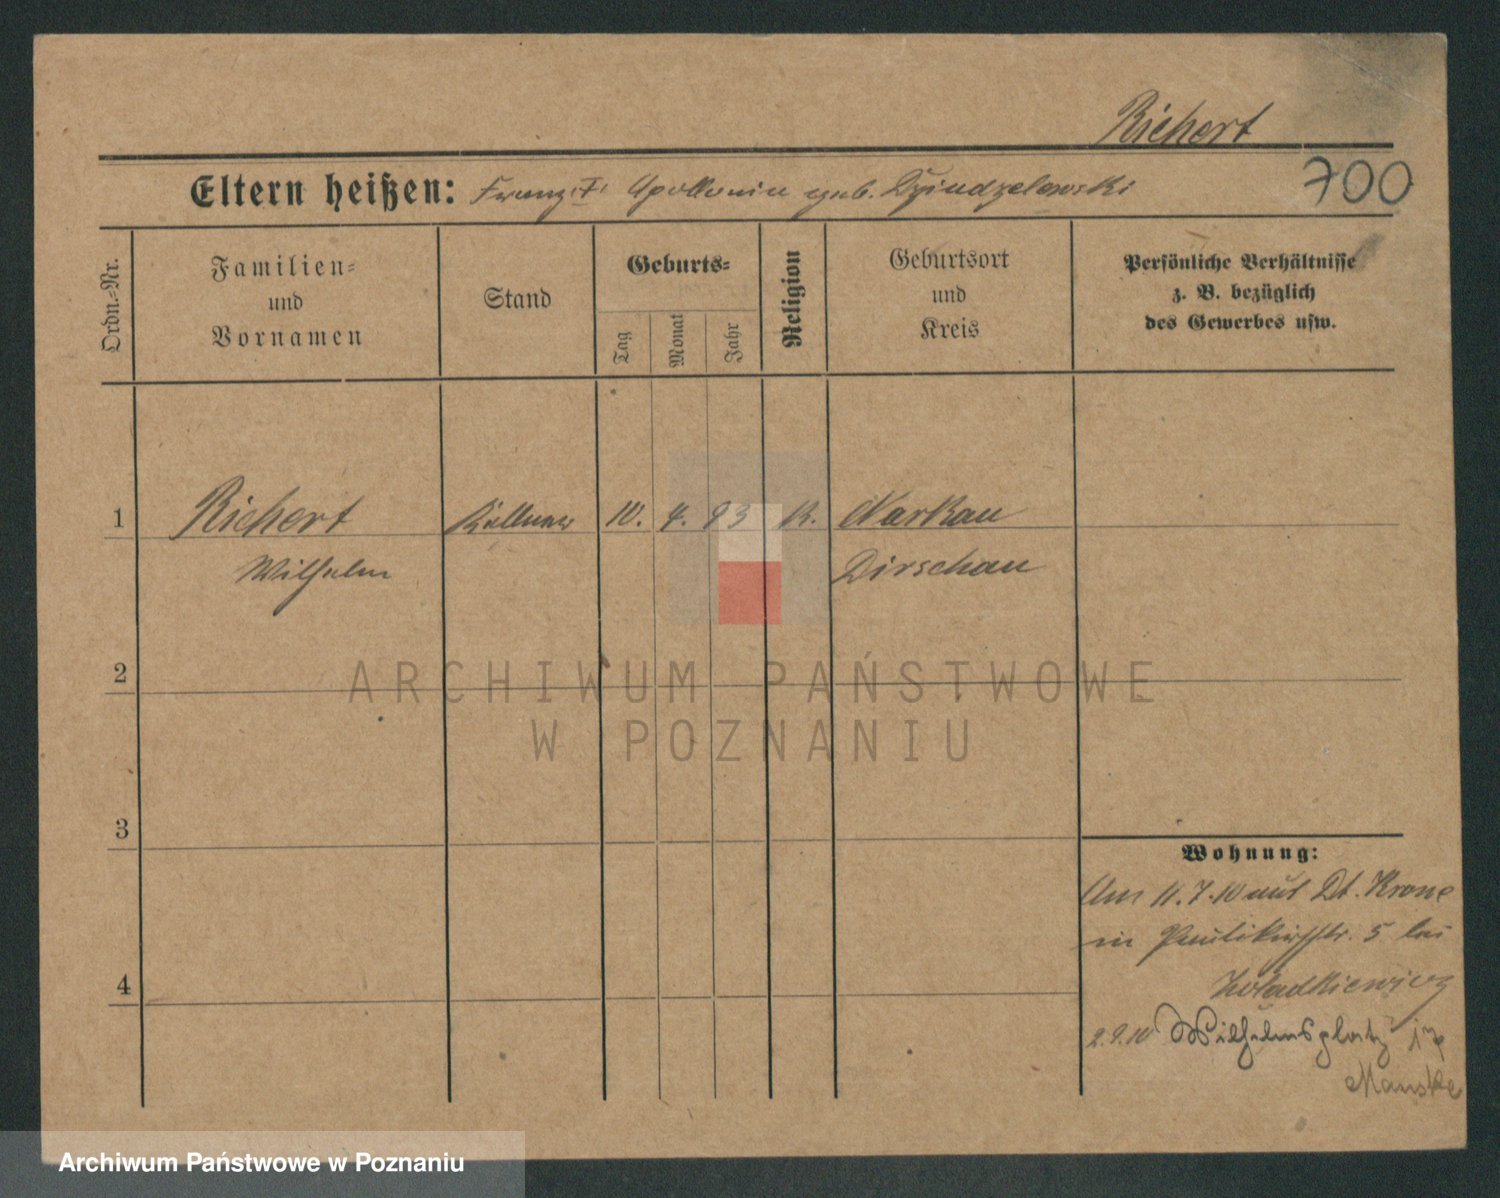 Richert
Eltern heißen: Franz, Apollonia geb. Dzindzelewski
700
Ordn.-Nr.
Familien-
und
Vornamen
Stand
Geburts-
Tag
Monat
Jahr
Religion
Geburtsort
und
Kreis
Persönliche Verhältnisse
z. B. bezüglich
des Gewerbes usw.
1 Richert Kellner 10. 4. 93 K. Narkau
Wilhelm Dirschau
2
3
4
Wohnung:
Am 11.7.10 aus Dt. Krone
in Paulikirchstr. 5 bei
Zoladkiewicz
2.9.10 Wilhelmsplatz 17
Manske
ARCHIWUM PAŃSTWOWE
W POZNANIU
Archiwum Państwowe w Poznaniu